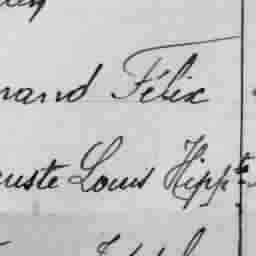 nand Félix
uste Louis Hippte